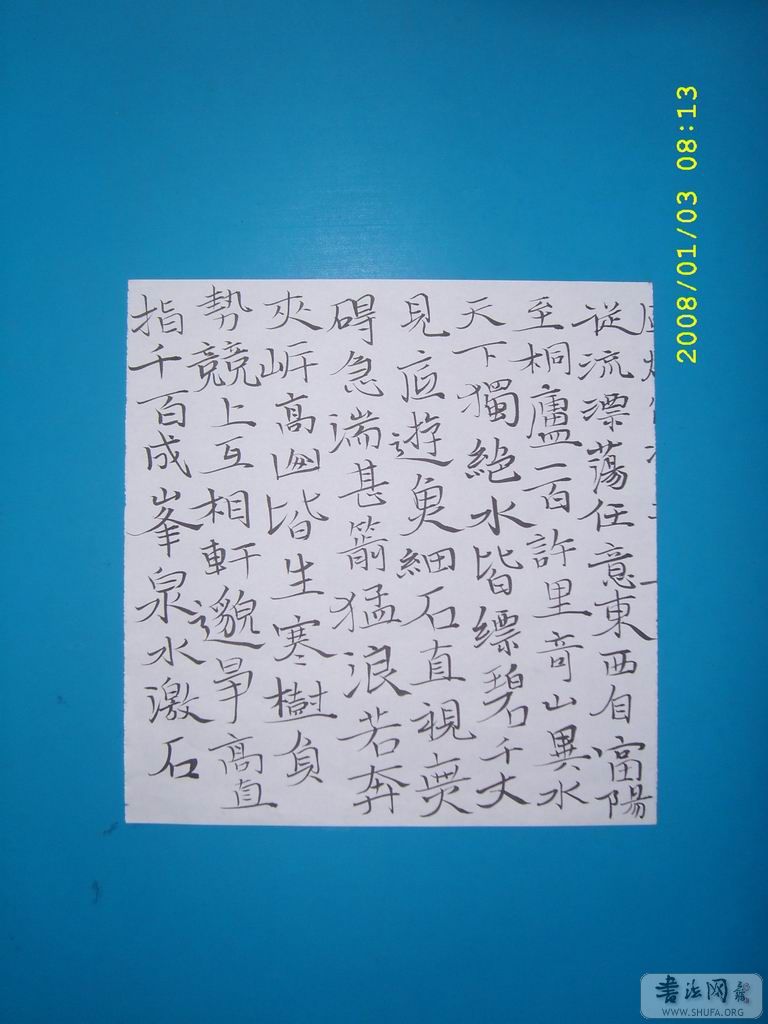 從流漂蕩任意東西自富陽
至桐廬一百許里奇山異水
天下獨絶水皆縹碧千丈
見底遊魚細石直視無
碍急湍甚箭猛浪若奔
夾岸高山皆生寒樹負
勢競上互相軒邈爭高直
指千百成峯泉水激石
2008/01/03 08:13
書法网
WWW.SHUFA.ORG